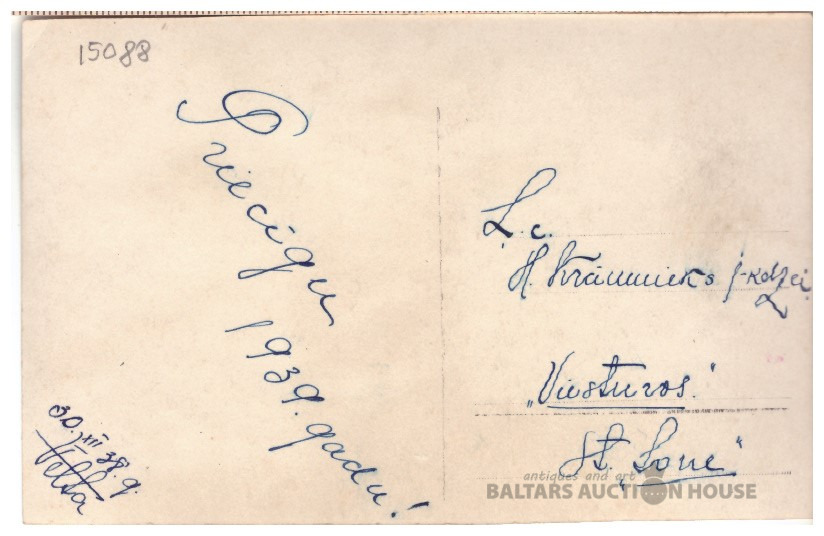 15088
Priecigu
1939. gadu!
30. XII 38. g.
Velta
L. c.
H. Krāmnieks j-kdzei
"Viesturos."
St. "Lone"
antiques and art
BALTARS AUCTION HOUSE